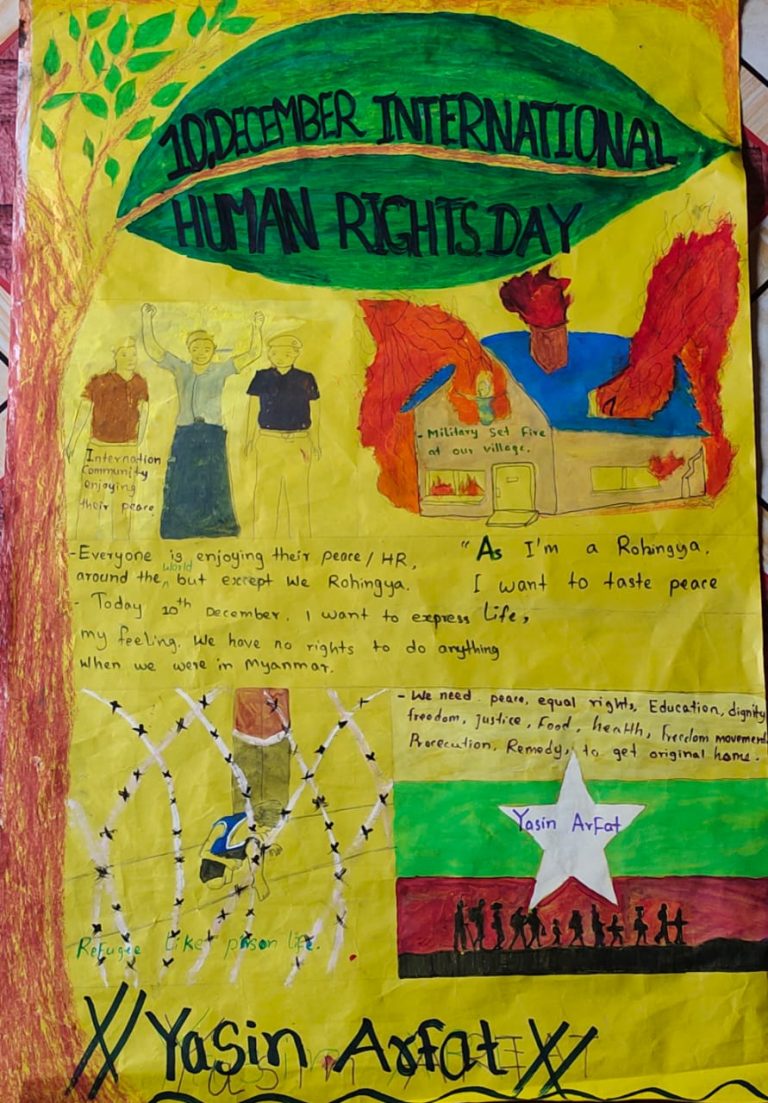 10,DECEMBER INTERNATIONAL
HUMAN RIGHTS DAY
Internation
Community
enjoying
their peace
- Military Set Fire
at our village.
- Everyone is enjoying their peace / HR,
around the world but except We Rohingya.
- Today 10th December. I want to express
my feeling. We have no rights to do anything
when we were in Myanmar.
"As I'm a Rohingya.
I want to taste peace
Life,
- We need peace, equal rights, Education, dignity
freedom, justice, Food, health, freedom movement
Prosecution, Remedy, to get original home.
Yasin Arfat
Refugee Like prison life.
Yasin Arfat